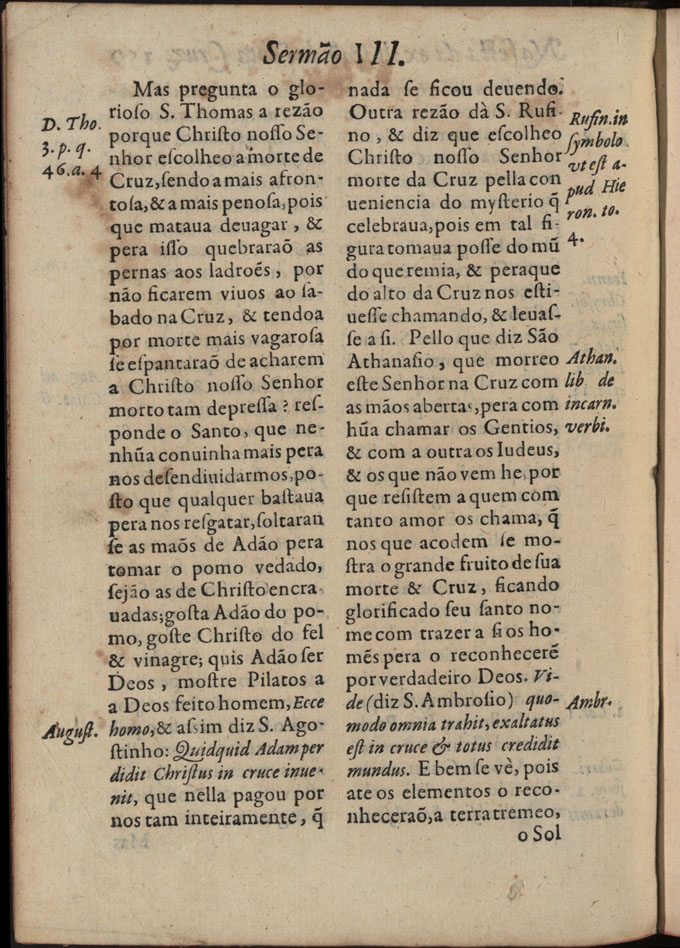 Sermão III.
Mas pregunta o glo-
rioſo S. Thomas a rezão
porque Chriſto noſſo Se-
nhor eſcolheo a morte de
Cruz, ſendo a mais afron-
toſa, & a mais penoſa, pois
que mataua deuagar, &
pera iſſo quebraraõ as
pernas aos ladroẽs, por
não ficarem viuos ao ſa-
bado na Cruz, & tendo a
por morte mais vagaroſa
ſe eſpantaraõ de acharem
a Chriſto noſſo Senhor
morto tam depreſſa? reſ-
ponde o Santo, que ne-
nhũa conuinha mais pera
nos deſendiuidarmos, po-
ſto que qualquer baſtaua
pera nos reſgatar, ſoltaran
ſe as maõs de Adão pera
tomar o pomo vedado,
ſejão as de Chriſto encra-
uadas; goſta Adão do po-
mo, goſte Chriſto do fel
& vinagre; quis Adão ſer
Deos, moſtre Pilatos a
a Deos feito homem, Ecce
homo, & aſsim diz S. Ago-
ſtinho: Quidquid Adam per
didit Chriſtus in cruce inue-
nit, que nella pagou por
nos tam inteiramente, q̃
D. Tho.
3. p. q.
46. a. 4
Auguſt.
nada ſe ficou deuendo.
Outra rezão dà S. Rufi-
no, & diz que eſcolheo
Chriſto noſſo Senhor
morte da Cruz pella con
ueniencia do myſterio q̃
celebraua, pois em tal fi-
gura tomaua poſſe do mũ
do que remia, & peraque
do alto da Cruz nos eſti-
ueſſe chamando, & leuaſ-
ſe a ſi. Pello que diz São
Athanaſio, que morreo
eſte Senhor na Cruz com
as mãos abertas, pera com
hũa chamar os Gentios,
& com a outra os Iudeus,
& os que não vem he, por
que reſiſtem a quem com
tanto amor os chama, q̃
nos que acodem ſe mo-
ſtra o grande fruito de ſua
morte & Cruz, ficando
glorificado ſeu ſanto no-
me com trazer a ſi os ho-
mẽs pera o reconhecerẽ
por verdadeiro Deos. Vi-
de (diz S. Ambroſio) quo-
modo omnia trahit, exaltatus
eſt in cruce & totus credidit
mundus. E bem ſe vè, pois
ate os elementos o reco-
nheceraõ, a terra tremeo,
o Sol
Rufin. in
ſymbolo
vt eſt a-
pud Hie
ron. to.
4.
Athan.
lib de
incarn.
verbi.
Ambr.